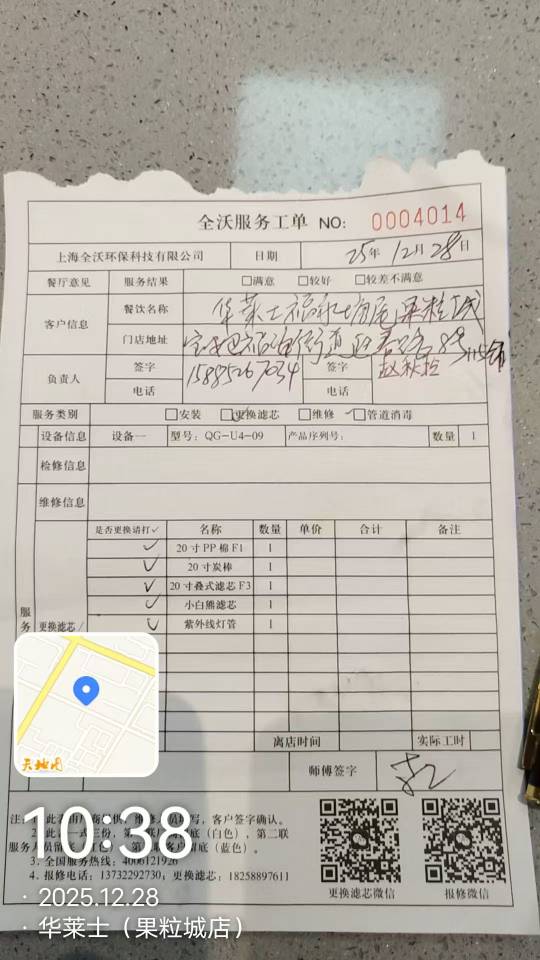 全沃服务工单 NO: 0004014
上海全沃环保科技有限公司 日期 25年12月28日
餐厅意见 服务结果 □满意 □较好 □较差不满意
客户信息 餐饮名称 华莱士福永 店果粒城
门店地址 宝 福海街道 路 8号115铺
负责人 签字 签字 赵秋
电话 15885267034 电话
服务类别 □安装 □更换滤芯 □维修 □管道消毒
设备信息 设备一 型号: QG-U4-09 产品序列号: 数量 1
检修信息
维修信息
是否更换请打✓ 名称 数量 单价 合计 备注
✓ 20寸PP棉F1 1
✓ 20寸炭棒 1
✓ 20寸叠式滤芯F3 1
✓ 小白熊滤芯 1
✓ 紫外线灯管 1
服务
更换滤芯/
离店时间 实际工时
师傅签字
此 写，客户签字确认。
一式三份，第 底（白色），第二联
服务人员留 第 底（蓝色）。
3、全国服务热线: 4006121926
4、报修电话: 13732292730; 更换滤芯: 18258897611
更换滤芯微信 报修微信
天地图
10:38
· 2025.12.28
· 华莱士（果粒城店）